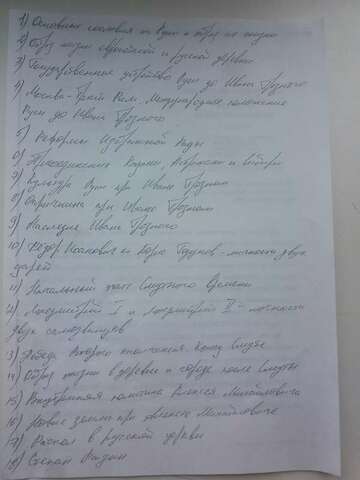 1) Основные сословия на Руси и образ их жизни
2) Образ жизни европейской и русской деревни
3) Государственное устройство Руси до Ивана Грозного
4) Москва - Третий Рим. Международное положение
Руси до Ивана Грозного
5) Реформы Избранной Рады
6) Присоединение Казани, Астрахани и Сибири
7) Культура Руси при Иване Грозном
8) Опричнина при Иване Грозном
9) Наследие Ивана Грозного
10) Фёдор Иоаннович и Борис Годунов - личности двух
царей
11) Начальный этап Смутного Времени
12) Лжедмитрий I и Лжедмитрий II - личности
двух самозванцев
13) Победа Второго ополчения. Конец Смуты
14) Образ жизни в деревне и городе после Смуты
15) Внутренняя политика Алексея Михайловича
16) Новые земли при Алексее Михайловиче
17) Раскол в русской церкви
18) Степан Разин